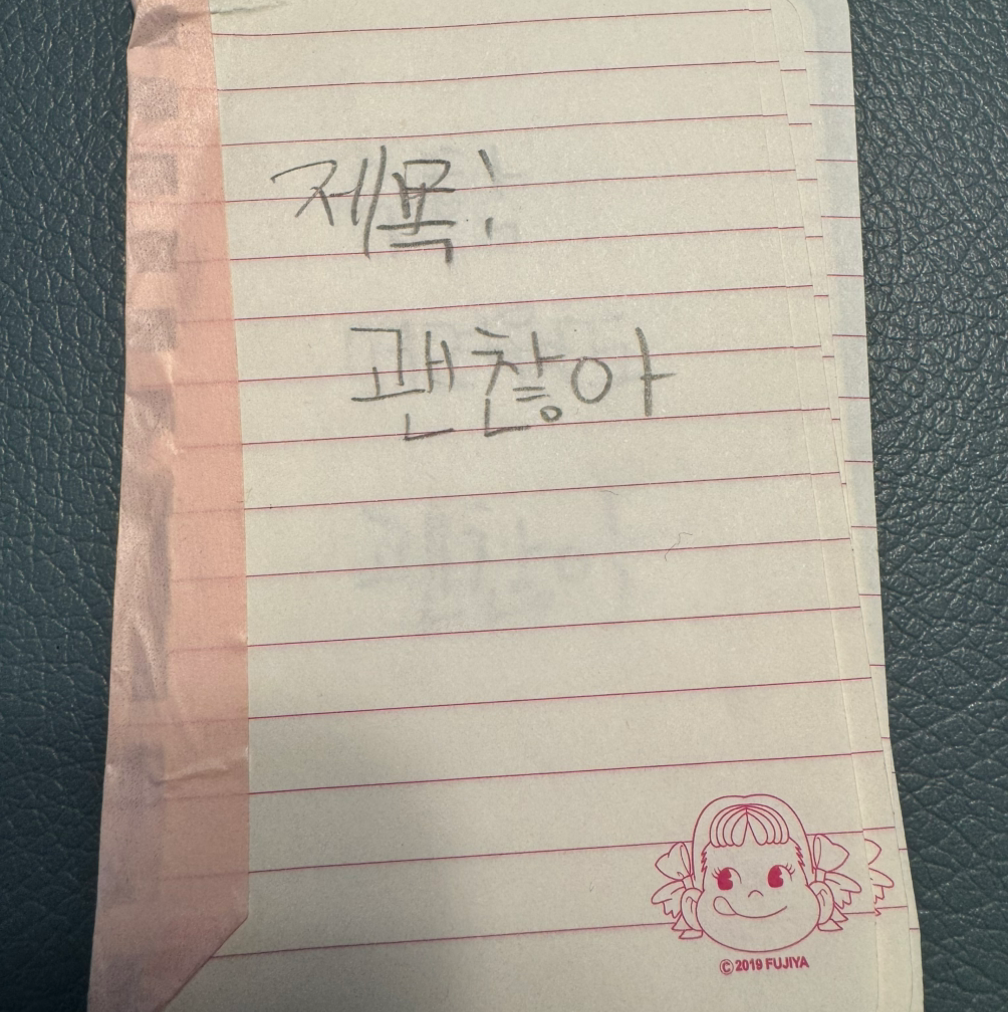 제목:
괜찮아
© 2019 FUJIYA